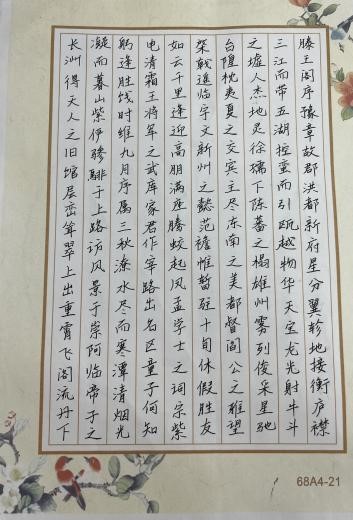 滕王阁序豫章故郡洪都新府星分翼轸地接衡庐襟
三江而带五湖控蛮而引瓯越物华天宝龙光射牛斗
之墟人杰地灵徐孺下陈蕃之榻雄州雾列俊采星驰
台隍枕夷夏之交宾主尽东南之美都督阎公之雅望
棨戟遥临宇文新州之懿范襜帷暂驻十旬休假胜友
如云千里逢迎高朋满座腾蛟起凤孟学士之词宗紫
电清霜王将军之武库家君作宰路出名区童子何知
躬逢胜饯时维九月序属三秋潦水尽而寒潭清烟光
凝而暮山紫俨骖騑于上路访风景于崇阿临帝子之
长洲得天人之旧馆层峦耸翠上出重霄飞阁流丹下
68A4-21